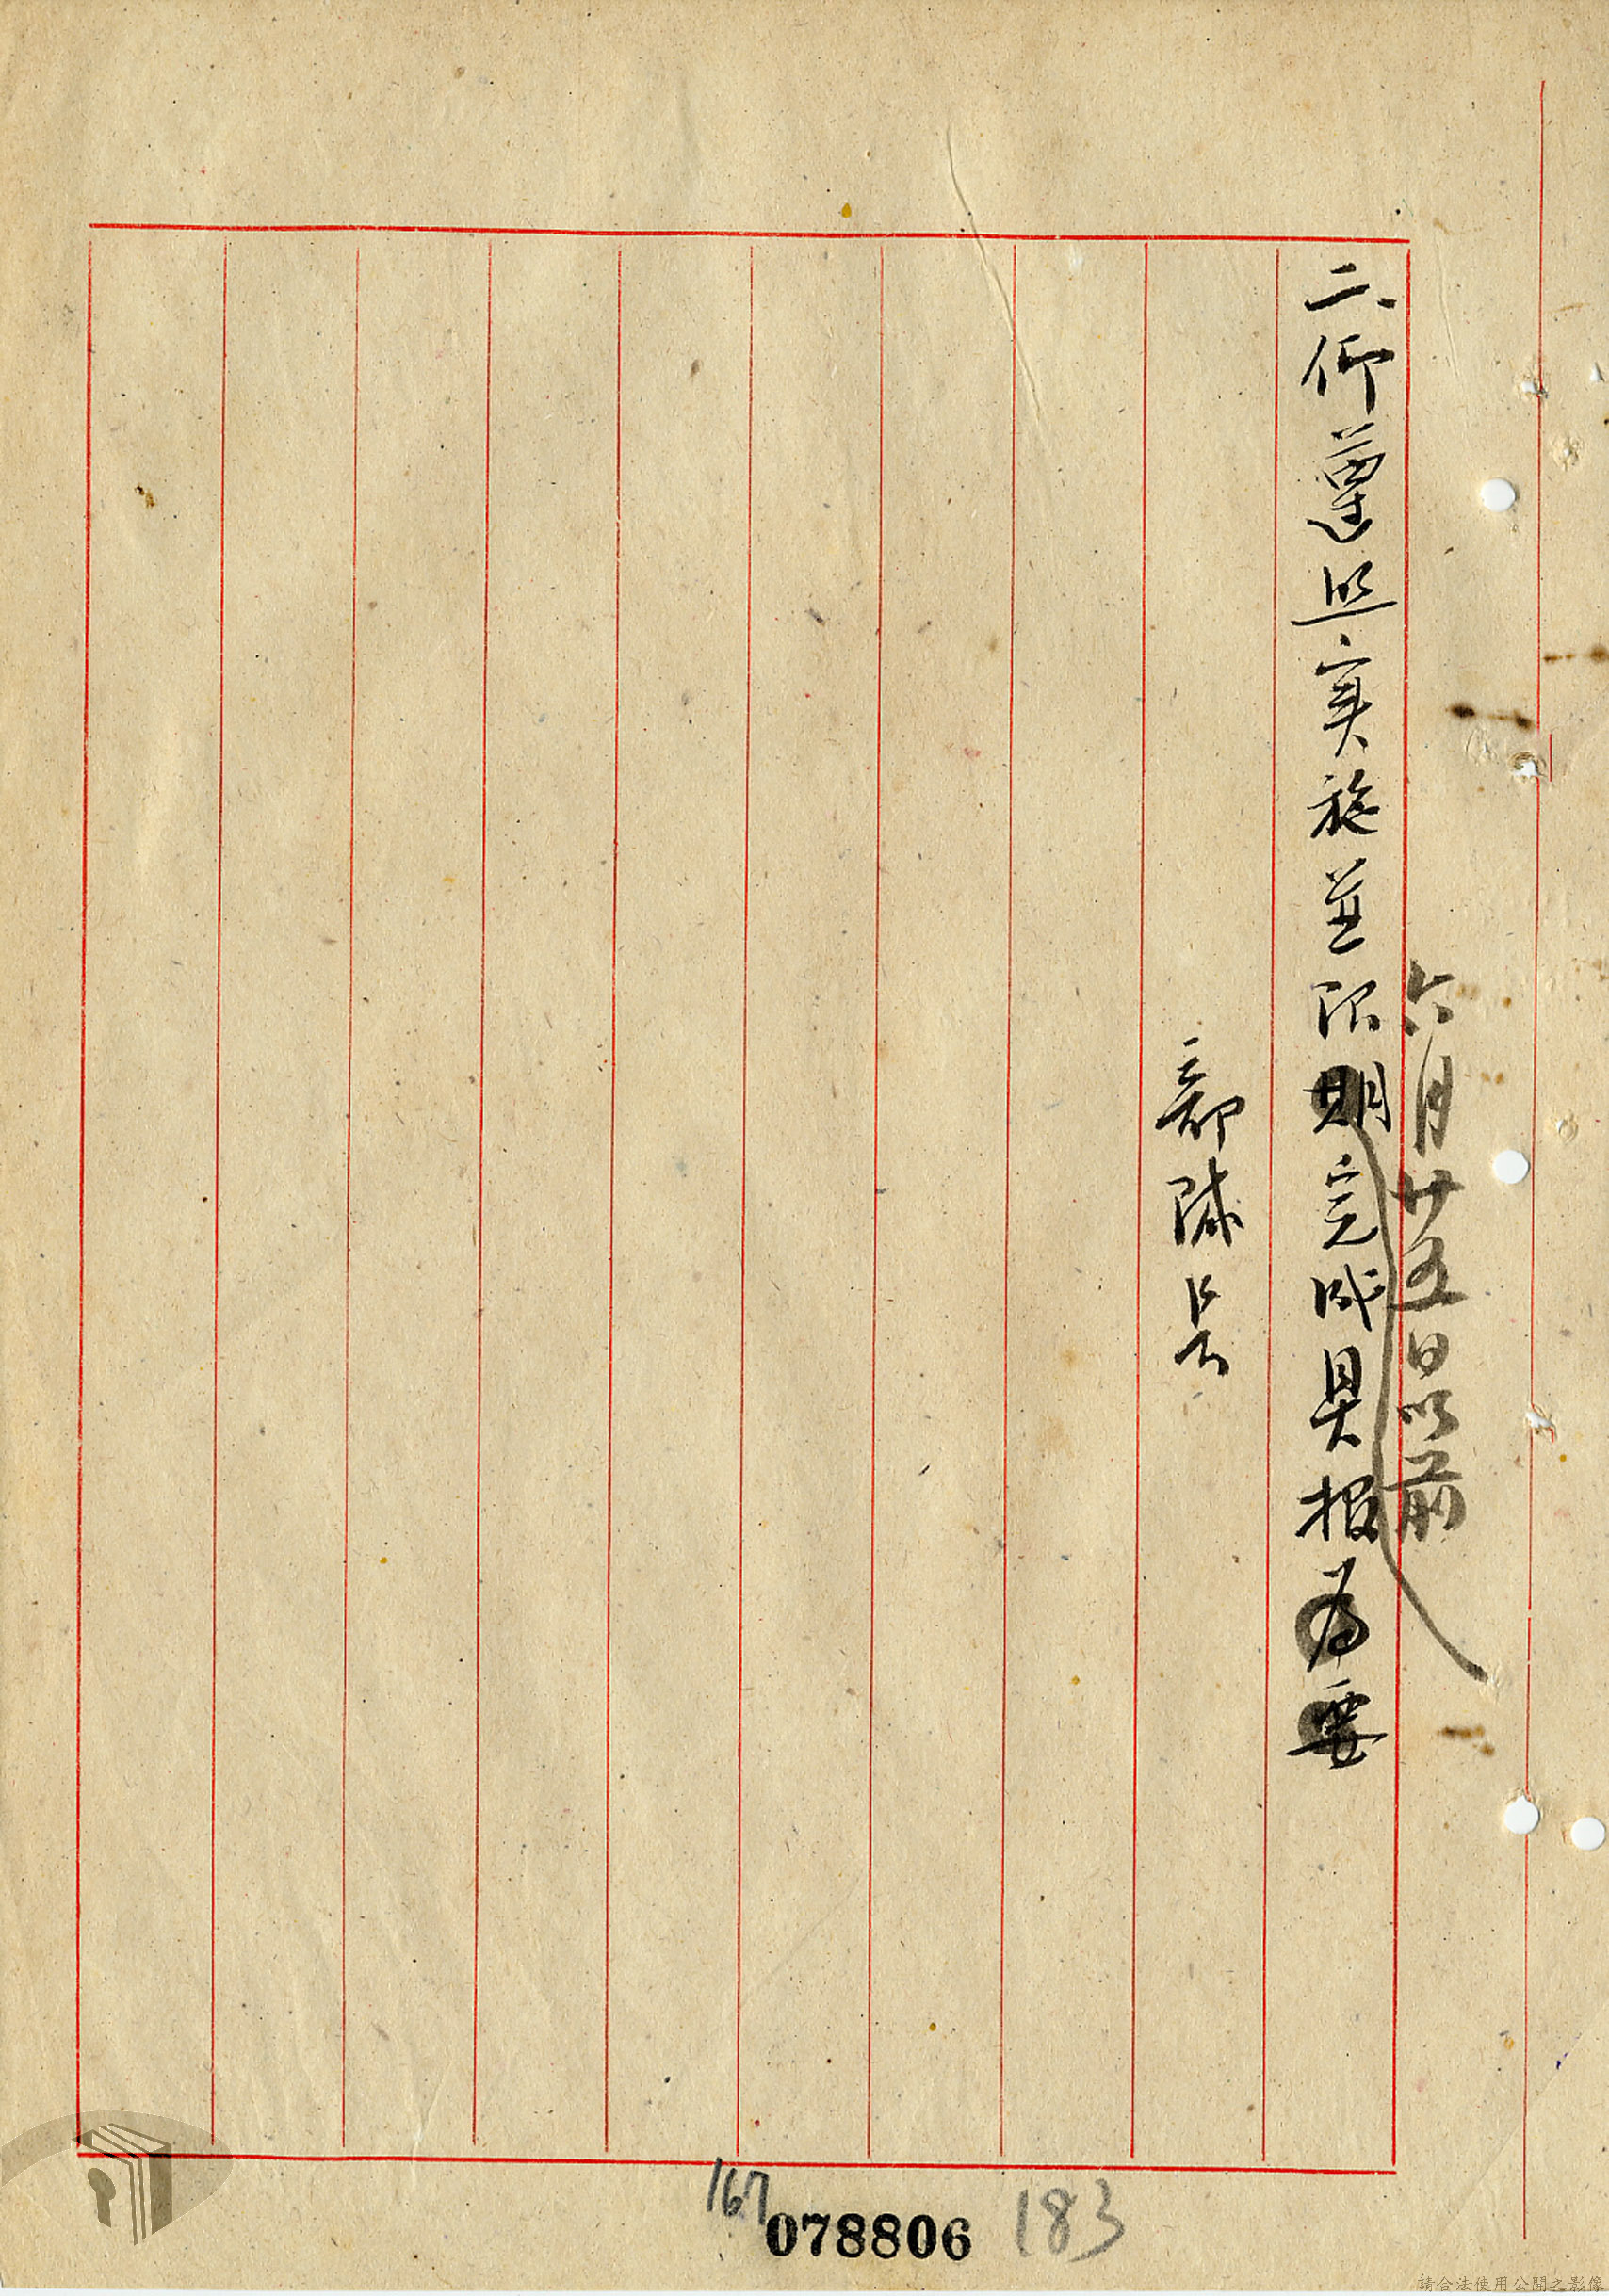 六月廿五日以前
二、仰遵照實施並限期完成具報為要
部隊長
167
078806
183
請合法使用公開之影像